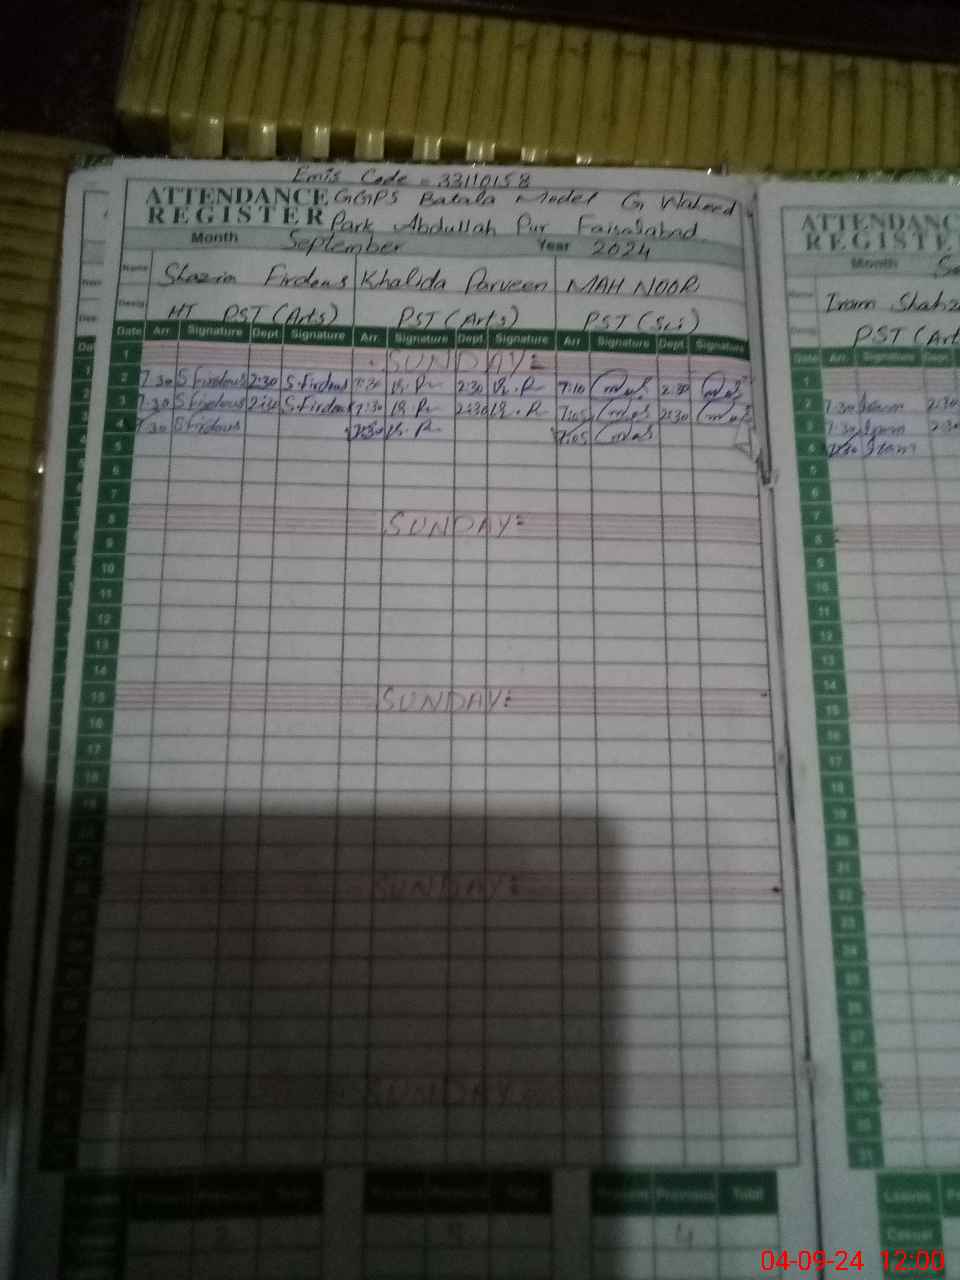 Emis Code = 33110158
ATTENDANCE GGPS Batala Model G Waheed
REGISTER Park Abdullah Pur Faisalabad
Month September Year 2024
Name Shazia Firdous Khalida Parveen MAH NOOR
HT PST (Arts) PST (Arts) PST (Sci)
Date Arr. Signature Dept Signature Arr. Signature Dept. Signature Arr Signature Dept. Signature
1 SUNDAY
2 7.30 S Firdous 2:30 S.Firdous 7:30 2:30 7:10 2:30
3 7:30 S Firdous 2:30 S.Firdous 7:30 2:30 7:05 2:30
4 7:30 S Firdous 7:30 7:05
5
6
7
8 SUNDAY:
9
10
11
12
13
14
15 SUNDAY:
16
17
18
19
SUNDAY:
SUNDAY
Present Previous Total
4
ATTENDANC
REGISTE
Month Se
Name Iram Shahz
PST (Art
Date Arr. Signature Dept.
1
2 7:30 Iram 2:30
3 7:30 Iram 2:30
4 7:30 Iram
5
6
7
8
9
10
11
12
13
14
15
16
17
18
19
20
21
22
23
24
25
26
27
28
29
30
31
Leaves
Casual
04-09-24 12:00